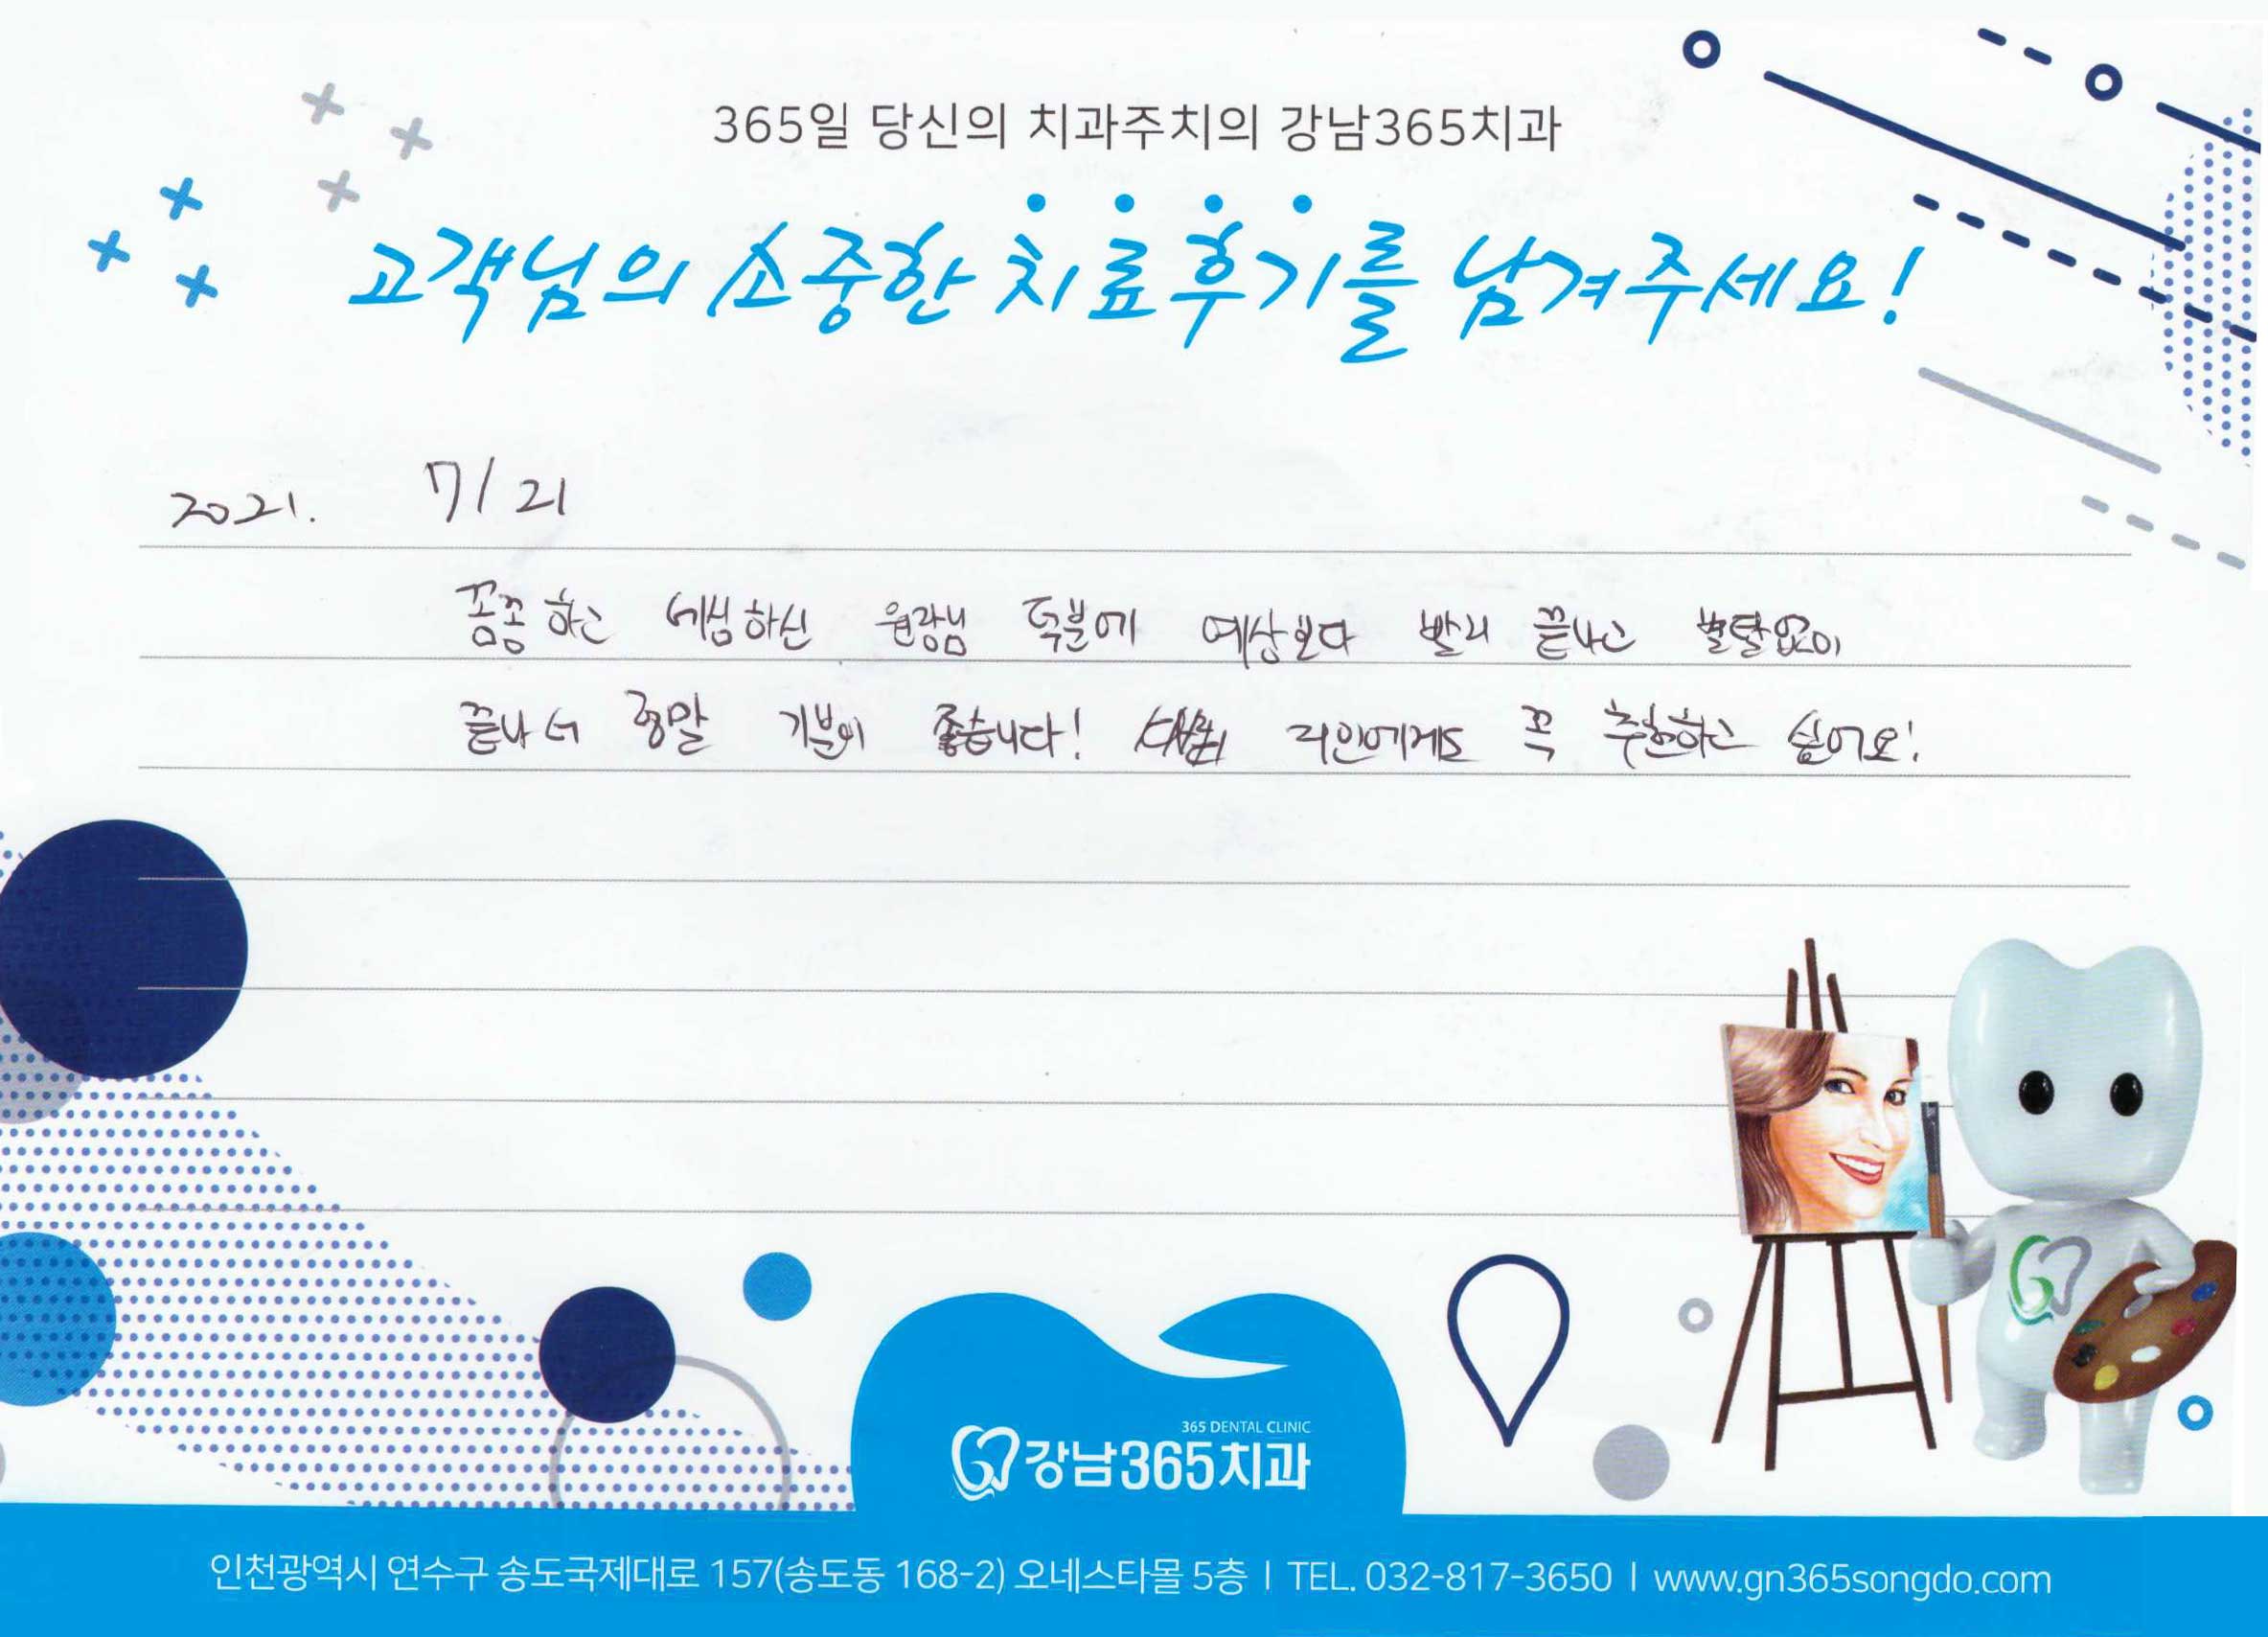 365일 당신의 치과주치의 강남365치과
고객님의 소중한 치료후기를 남겨주세요!
2021. 7/21
꼼꼼하고 세심하신 원장님 덕분에 예상보다 빨리 끝나고 별탈없이
끝나서 정말 기분이 좋습니다! 지인에게도 꼭 추천하고 싶어요!
365 DENTAL CLINIC
강남365치과
인천광역시 연수구 송도국제대로 157(송도동 168-2) 오네스타몰 5층 | TEL. 032-817-3650 | www.gn365songdo.com